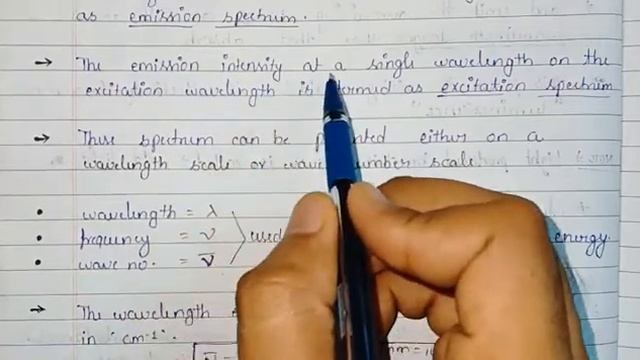 as emission spectrum.
→ The emission intensity at a single wavelength on the
excitation wavelength is termed as excitation spectrum
→ These spectrum can be either on a
wavelength scale or wave number scale.
• wavelength = λ
• frequency = ν used energy
• wave no. = ν̄
→ The wavelength
in 'cm⁻¹.